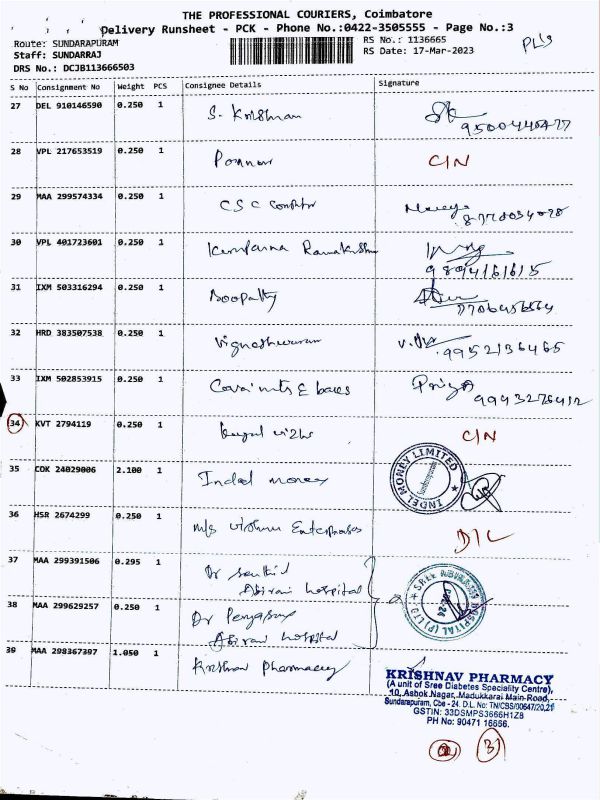 THE PROFESSIONAL COURIERS, Coimbatore
Delivery Runsheet - PCK - Phone No.:0422-3505555 - Page No.:3
Route: SUNDARAPURAM
RS No.: 1136665
Staff: SUNDARRAJ
RS Date: 17-Mar-2023
DRS No.: DCJB113666503
S No Consignment No Weight PCS Consignee Details Signature
27 DEL 910146590 0.250 1 S. Krishnan
28 VPL 217653519 0.250 1 Ponnan C/N
29 MAA 299574334 0.250 1 CSC
30 VPL 401723601 0.250 1
9894161615
31 IXM 503316294 0.250 1 Boopathy
32 HRD 383507538 0.250 1 Vigneshwaran
9952136465
33 IXM 502853915 0.250 1 Covai nuts & bakes Priya
34 KVT 2794119 0.250 1 C/N
35 COK 24029006 2.100 1 Indel money
INDEL MONEY LIMITED
36 HSR 2674299 0.250 1 M/s Vishnu Enterprises D/L
37 MAA 299391506 0.295 1 Dr Senthil
Abirami hospital
38 MAA 299629257 0.250 1 Dr
Abirami hospital
39 MAA 298367397 1.050 1 Krishnav Pharmacy
KRISHNAV PHARMACY
(A unit of Sree Diabetes Speciality Centre),
10, Ashok Nagar, Madukkarai Main Road,
Sundarapuram, Cbe - 24. D.L. No: TN/CSS/00647/20,21
GSTIN: 33DSMPS3666H1Z8
PH No: 90471 16666.